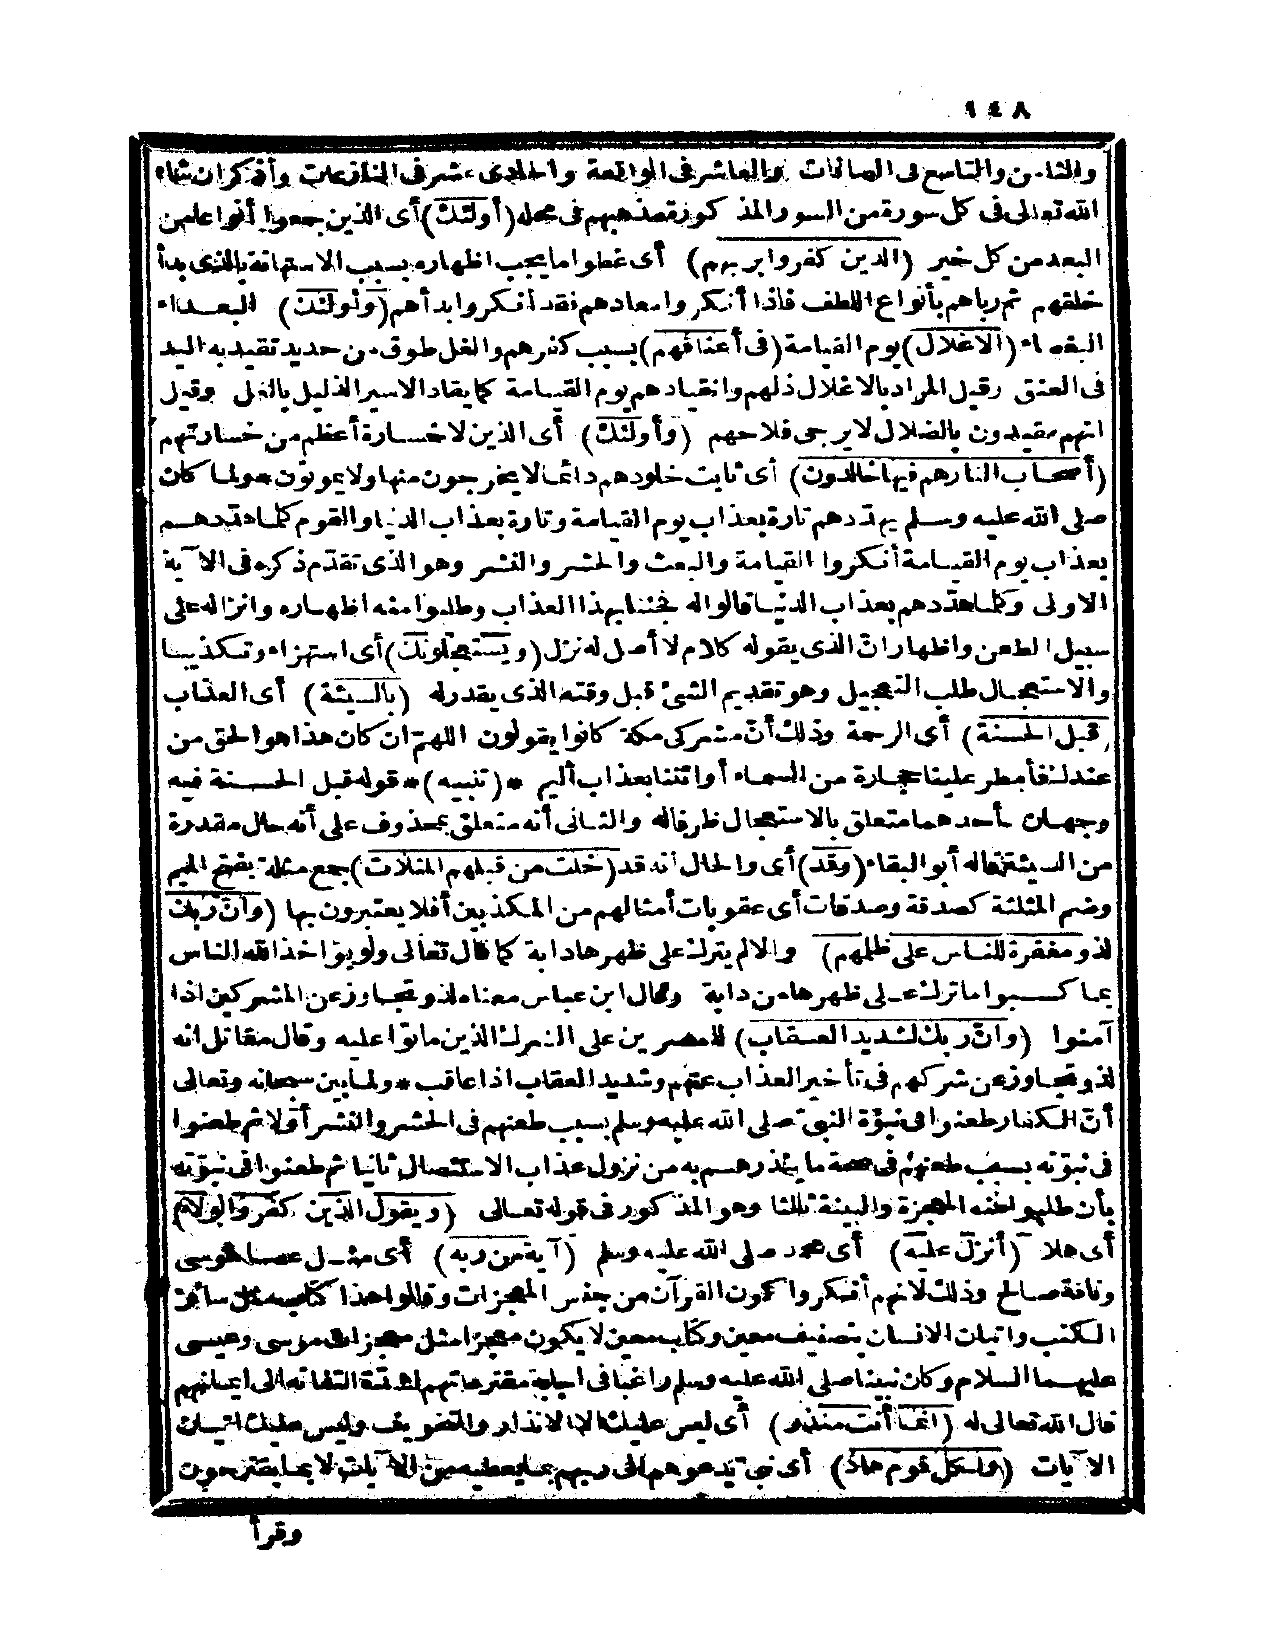 ١٤٨
والثامن والتاسع فى الصافات والعاشر فى الواقعة والحادى عشر فى النازعات وأذكر ان شاء
الله تعالى فى كل سورة من السور المذكورة مذهبهم فى محله (أولئك) أى الذين جمعوا أنواعا من
البعد من كل خير (الذين كفروا بربهم) أى غطوا ما يجب اظهاره بسبب الاستهانة بالذى بدأ
خلقهم ثم رباهم بأنواع اللطف فاذا أنكروا معادهم فقد أنكروا بدأهم (وأولئك) البعداء
البغضاء (الاغلال) يوم القيامة (فى أعناقهم) بسبب كفرهم والغل طوق من حديد تقيد به اليد
فى العنق وقيل المراد بالاغلال ذلهم وانقيادهم يوم القيامة كما يقاد الاسير الذليل بالغل وقيل
انهم مقيدون بالضلال لا يرجى فلاحهم (وأولئك) أى الذين لا خسارة أعظم من خسارتهم
(أصحاب النار هم فيها خالدون) أى ثابت خلودهم دائما لا يخرجون منها ولا يموتون * ولما كان
صلى الله عليه وسلم يهددهم تارة بعذاب يوم القيامة وتارة بعذاب الدنيا والقوم كلما هددهم
بعذاب يوم القيامة أنكروا القيامة والبعث والحشر والنشر وهو الذى تقدّم ذكره فى الآية
الاولى وكلما هدّدهم بعذاب الدنيا قالوا له فجئنا بهذا العذاب وطلبوا منه اظهاره وانزاله على
سبيل الطعن واظهار انّ الذى يقوله كلام لا أصل له نزل (ويستعجلونك) أى استهزاء وتكذيبا
والاستعجال طلب التعجيل وهو تقديم الشئ قبل وقته الذى يقدر له (بالسيئة) أى العذاب
(قبل الحسنة) أى الرحمة وذلك أنّ مشركى مكة كانوا يقولون اللهمّ ان كان هذا هو الحق من
عندك فأمطر علينا حجارة من السماء أو ائتنا بعذاب أليم * (تنبيه) * قوله قبل الحسنة فيه
وجهان أحدهما متعلق بالاستعجال ظرفا له والثانى أنه متعلق بمحذوف على أنه حال مقدرة
من السيئة قاله أبو البقاء (وقد) أى والحال أنه قد (خلت من قبلهم المثلات) جمع مثلة بفتح الميم
وضم المثلثة كصدقة وصدقات أى عقوبات أمثالهم من المكذبين أفلا يعتبرون بها (وانّ ربك
لذو مغفرة للناس على ظلمهم) والا لم يترك على ظهرها دابة كما قال تعالى ولو يؤاخذ الله الناس
بما كسبوا ما ترك على ظهرها من دابة وقال ابن عباس معناه لذو تجاوز عن المشركين اذا
آمنوا (وانّ ربك لشديد العقاب) للمصرين على الشرك الذين ماتوا عليه وقال مقاتل انه
لذو تجاوز عن شركهم فى تأخير العذاب عنهم وشديد العقاب اذا عاقب * ولما بين سبحانه وتعالى
أنّ الكفار طعنوا فى نبوّة النبىّ صلى الله عليه وسلم بسبب طعنهم فى الحشر والنشر أوّلا ثم طعنوا
فى نبوّته بسبب طعنهم فى صحة ما ينذرهم به من نزول عذاب الاستئصال ثانيا ثم طعنوا فى نبوّته
بأن طلبوا منه المعجزة والبينة ثالثا وهو المذكور فى قوله تعالى (ويقول الذين كفروا لولا)
أى هلا (أنزل عليه) أى محمد صلى الله عليه وسلم (آية من ربه) أى مثل عصا موسى
وناقة صالح وذلك لانهم أنكروا كون القرآن من جنس المعجزات وقالوا هذا كتاب مثل سائر
الكتب واتيان الانسان بتصنيف معين وكتاب معين لا يكون معجزا مثل معجزات موسى وعيسى
عليهما السلام وكان نبينا صلى الله عليه وسلم راغبا فى اجابة مقترحاتهم لشدّة التفاته الى ايمانهم
قال الله تعالى له (انما أنت منذر) أى ليس عليك الا الانذار والتخويف وليس عليك اتيان
الآيات (ولكل قوم هاد) أى نبىّ يدعوهم الى ربهم بما يعطيه من الآيات لا بما يقترحون
وقرأ